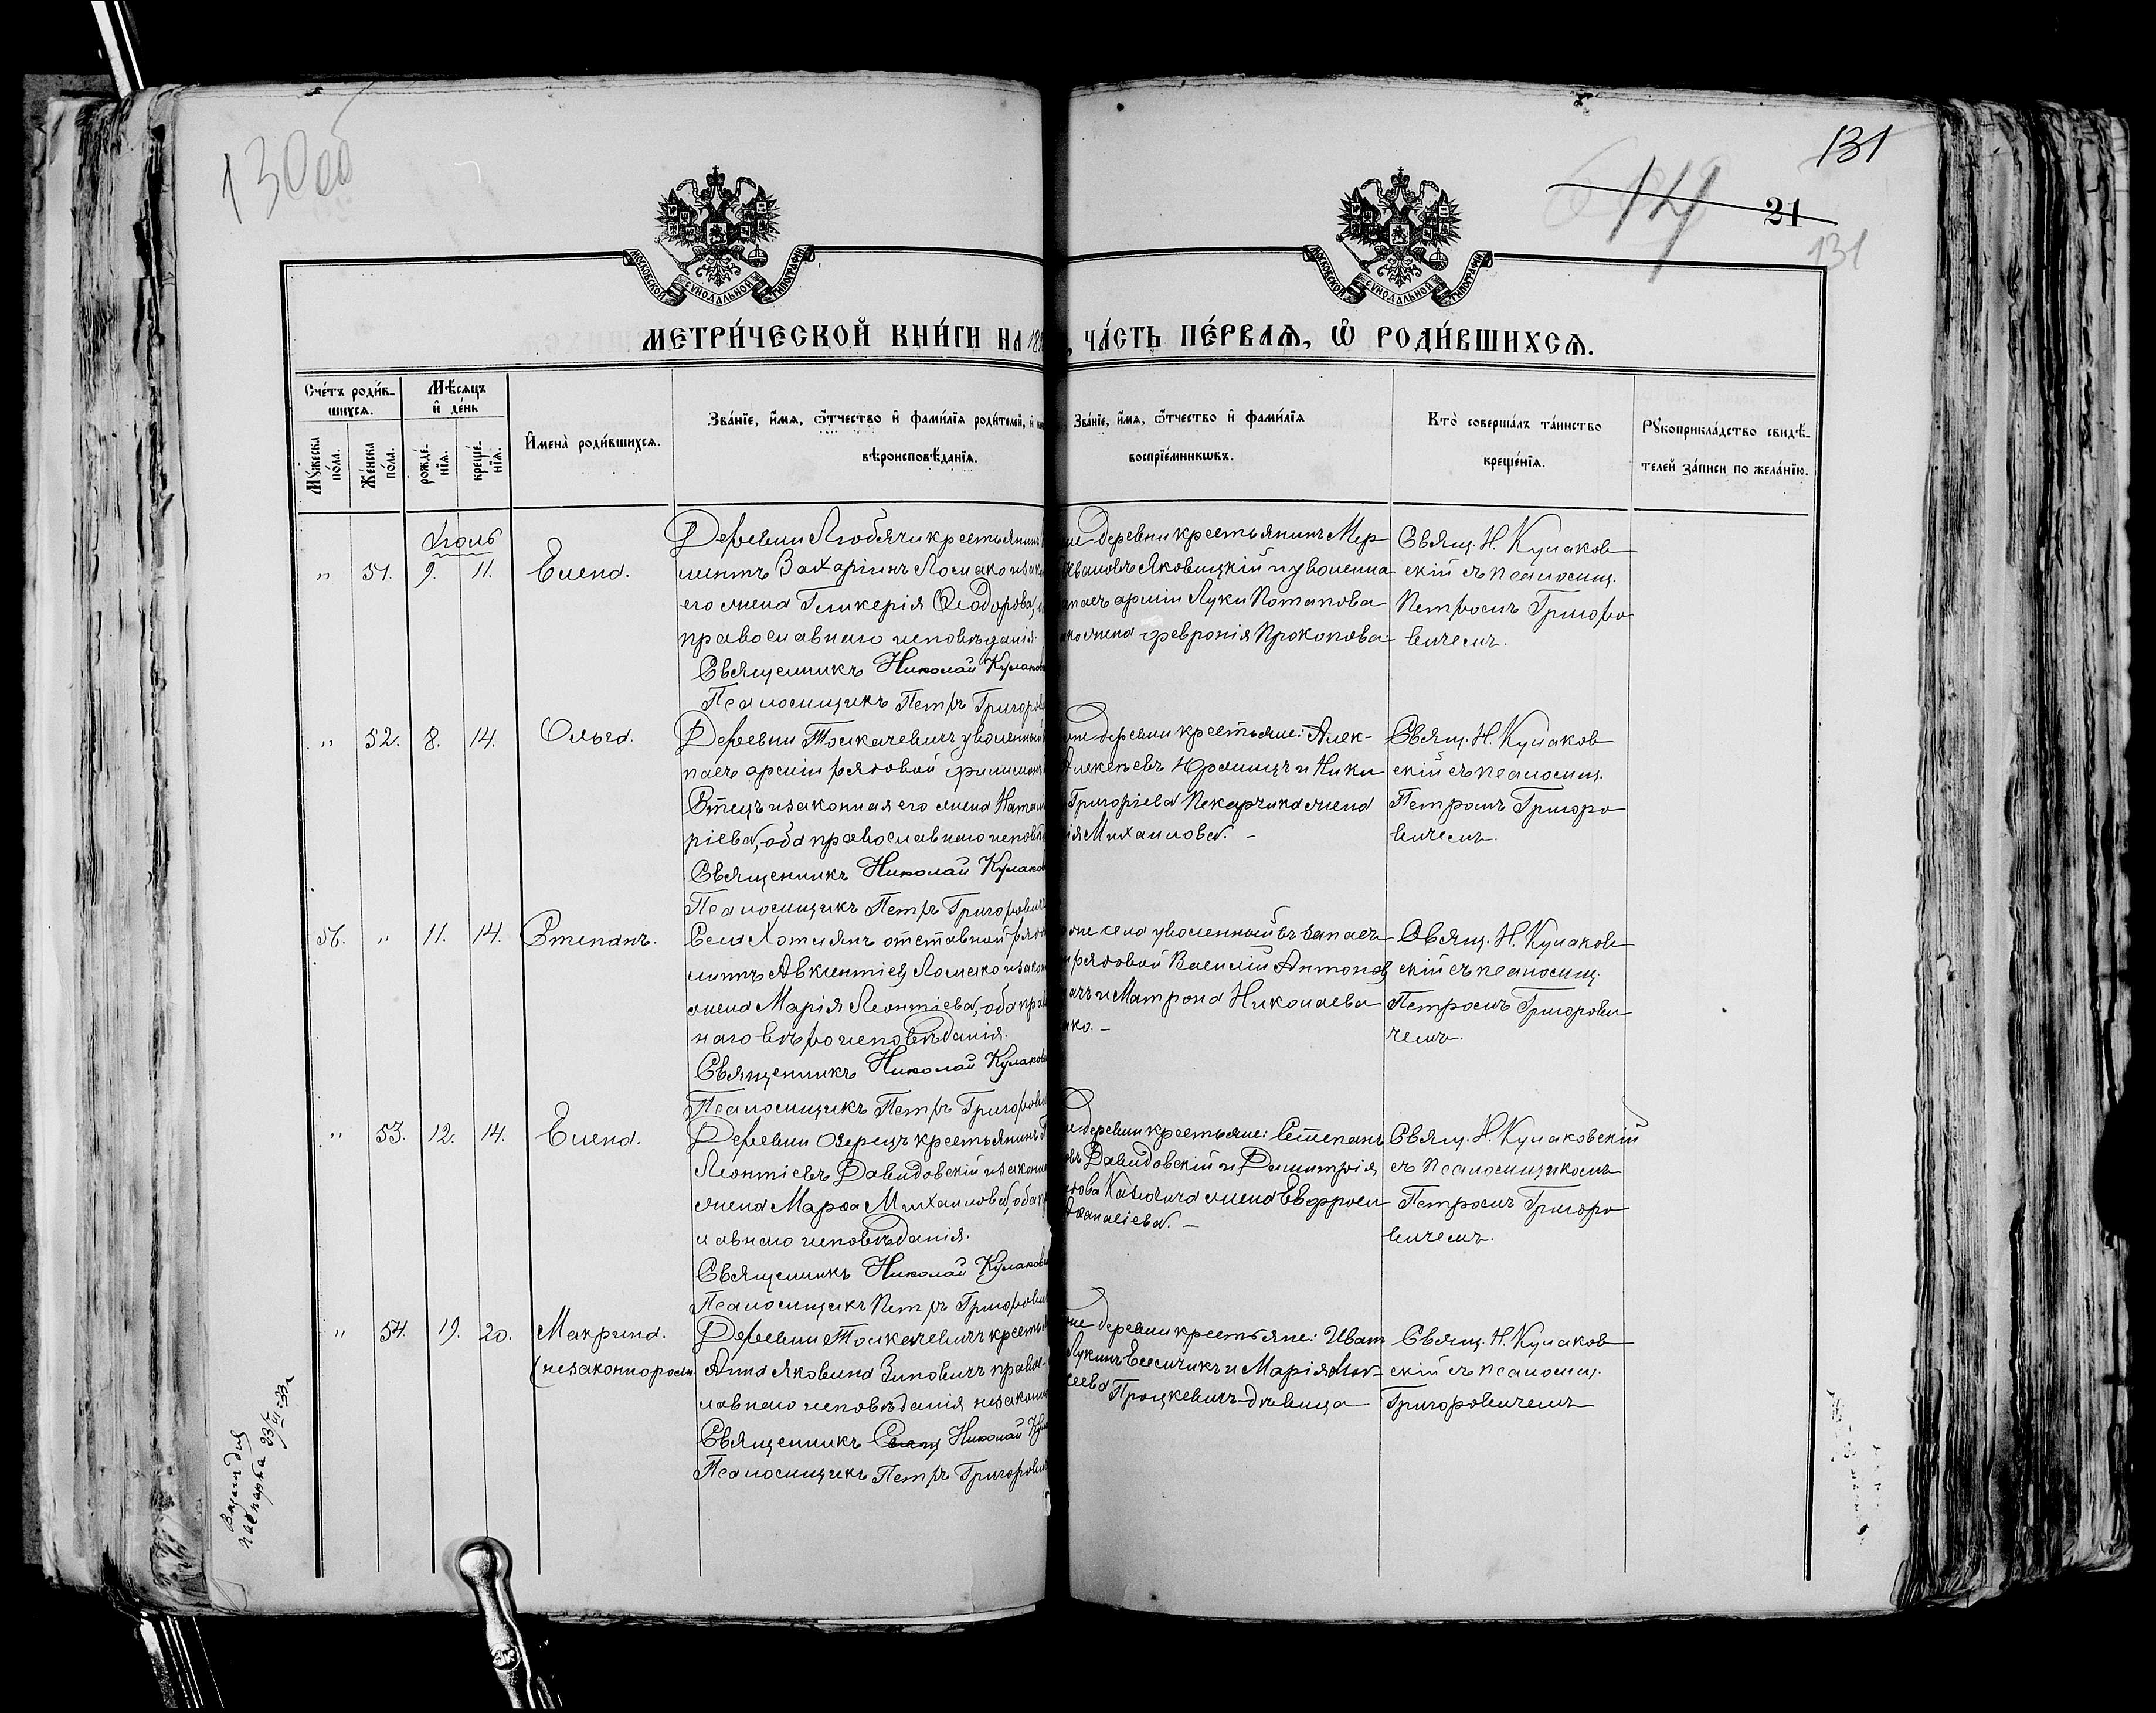 130об
131
21
131
МОСКОВСКОЙ СѴНОДАЛЬНОЙ ТИПОГРАФІИ
МОСКОВСКОЙ СѴНОДАЛЬНОЙ ТИПОГРАФІИ
МЕТРИ́ЧЕСКОЙ КНИ́ГИ НА 189
, ЧА́СТЬ ПЕ́РВАѦ, Ѽ РОДИ́ВШИХСѦ.
Сче́тъ роди́в-
шихсѧ.
Мѣ́сѧцъ
и҆ де́нь
Мꙋ́жеска
по́ла.
Же́нска
по́ла.
рожде́-
нїѧ.
креще́-
нїѧ.
И҆мена̀ роди́вшихсѧ.
Зва́нїе, и҆́мѧ, ѻ҆́тчество и҆ фами́лїѧ роди́телей, и҆
вѣроисповѣ́данїѧ.
Зва́нїе, и҆́мѧ, ѻ҆́тчество и҆ фами́лїѧ
воспрїе́мникѡвъ.
Кто̀ соверша́лъ та́инство
креще́нїѧ.
Рꙋкоприкла́дство свидѣ́-
телей за́писи по жела́нїю.
Іюль
„ 51. 9. 11. Елена.
Деревни Люблячи крестьянинъ
липтъ Захаріинъ Ломако и зако
его жена Гликерія Ѳеодорова,
православнаго исповѣданія.
Священникъ Николай Кулаков
Псаломщикъ Петръ Григоров
деревни крестьянинъ Мер
Ивановъ Яковицкій и уволенна
запасъ арміи Луки Потапова
жена Февронія Прокопова
Свящ. Н. Кулаков
скій съ псаломщ.
Петромъ Григоро
вичемъ.
„ 52. 8. 14. Ольга.
Деревни Толкачевичъ уволенный
пасъ арміи рядовой Филимонъ
Отецъ и законная его жена Ната
ріева, оба православнаго исповѣ
Священникъ Николай Кулаков
Псаломщикъ Петръ Григорович
деревни крестьяне: Алек-
Алексѣевъ Юраницъ и Ники
Григоріева Пекарчика жена
ія Михаилова. –
Свящ. Н. Кулаков
скій съ псаломщ.
Петромъ Григоро
вичемъ.
56. „ 11. 14. Стефанъ.
Села Хотлянъ отставной рядо
липтъ Авкентіев Ломако и закон
жена Марія Леонтіева, оба прав
наго вѣроисповѣданія.
Священникъ Николай Кулаков
Псаломщикъ Петръ Григорови
же села уволенный въ запасъ
рядовой Василій Антонов
ачъ и Матрона Николаева
ако. –
Свящ. Н. Кулаков
скій съ псаломщ.
Петромъ Григорови
чемъ.
„ 53. 12. 14. Елена.
Деревни Озерецъ крестьянинъ
Леонтіевъ Давидовскій и законн
жена Марѳа Михаилова, оба пр
лавнаго исповѣданія.
Священникъ Николай Кулаков
Псаломщикъ Петръ Григорови
деревни крестьяне: Стефанъ
овъ Давидовскій и Димитрія
Казючица жена Евфроси
Аѳанасіева. –
Свящ. Н. Кулаковскій
съ псаломщикомъ
Петромъ Григоро
вичемъ.
„ 54. 19. 20. Макрина.
(незаконнорожд.
Деревни Толкачевичъ крестья
Анна Яковлева Зиновичъ правос-
лавнаго исповѣданія незаконн
Священникъ Свящ Николай Кул
Псаломщикъ Петръ Григорови
же деревни крестьяне: Иванъ
Лукинъ Евсѣчикъ и Марія Мои-
сеева Процкевичъ-дѣвица
Свящ. Н. Кулаков
скій съ псаломщ.
Григоровичемъ
Видан для
паспарта